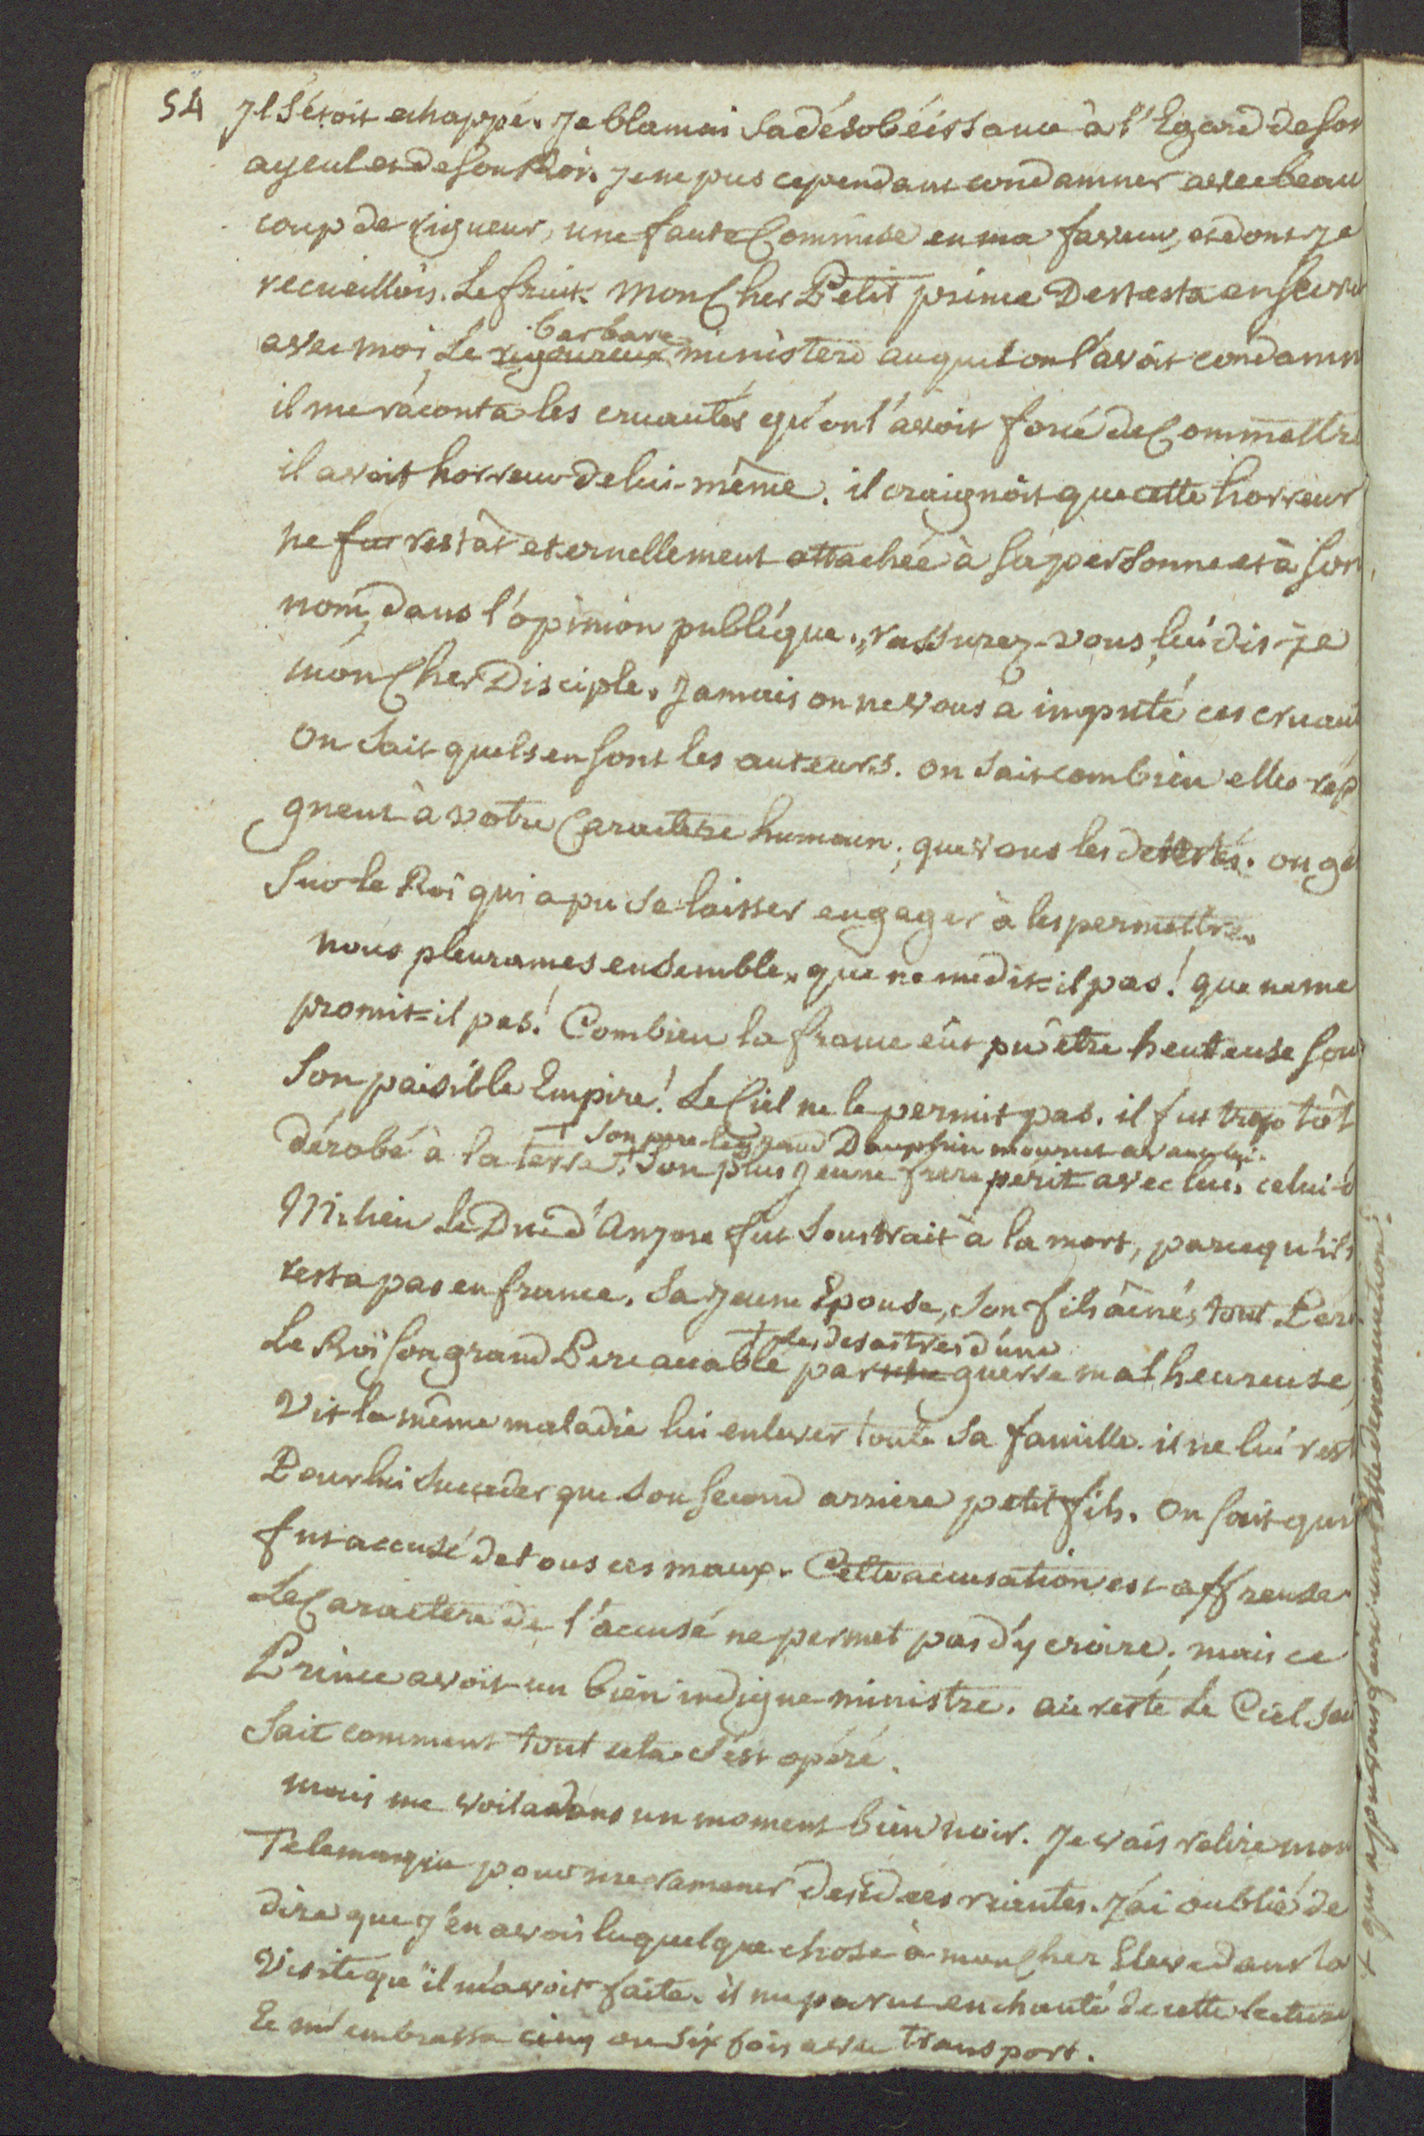 54 Jl S'étoit echappé. Je blamai Sa désobéissance à l'Egard de Son
ayeul et de Son Roi. Je ne pus cependant condamner avec beau
coup de rigueur, une faute Commise en ma faveur, et dont je
recueillois. Le fruit. Mon Cher Petit prince Detesta en secret
barbare
avec moi, Le rigoureux ministere auquel on l'avoit condamn
il me raconta les cruautés qu'on l'avoit forcé de Commettre
il avoit horreur de lui-même. il craignoit que cette horreur
ne fut restât eternellement attachée à Sa personne et à Son
nom, dans l'opinion publique. „rassurez-vous, lui dis-je
mon Cher Disciple. Jamais on ne vous a imputé ces cruaut
On Sait quels en Sont les auteurs. on Sait combien elles rép
gnent à votre Caractere humain; que vous les detestés. on gé
Sur le Roi qui a pu se laisser engager à les permettre.
nous pleurames ensemble. que ne me dit=il pas! que ne me
promit=il pas! Combien la france eût pu être heureuse Sou
Son paisible Empire! Le Ciel ne le permit pas. il fut trop tôt
+ Son pere le grand Dauphin mourut avant lui.
dérobé à la terre. + Son plus jeune frere périt avec lui. celui-d
Milieu Le Duc d'Anjou fut Soustrait à la mort, parcequ'il
resta pas en france. Sa jeune Epouse, Son fils ainés, tout Peri
+ Les desastres d'une
Le Roï Son grand Pere accablé par guerre malheureuse
Vit la même maladie lui enlever toute Sa famille. il ne lui rest
Pour lui Succeder que Son Second arriere petit fils. On Sait qui
fut accusé de tous ces maux. Cette accusation est affreuse
Le Caractere de l'accusé ne permet pas d'y croire; mais ce
Prince avoit un bien indigne ministre. au reste Le Ciel Seu
Sait comment tout cela s'est opéré.
Mais me voila dans un moment bien noir. Je vais relire mon
Telemaque pour me ramener des idées riantes. J'ai oublié de
dire que j'en avois lu quelque chose à mon Cher Eleve dans la
Visite qu'il m'avoit faite. il me parut enchanté de cette lecture
Et m'embrassa cinq ou Six fois avec transport.